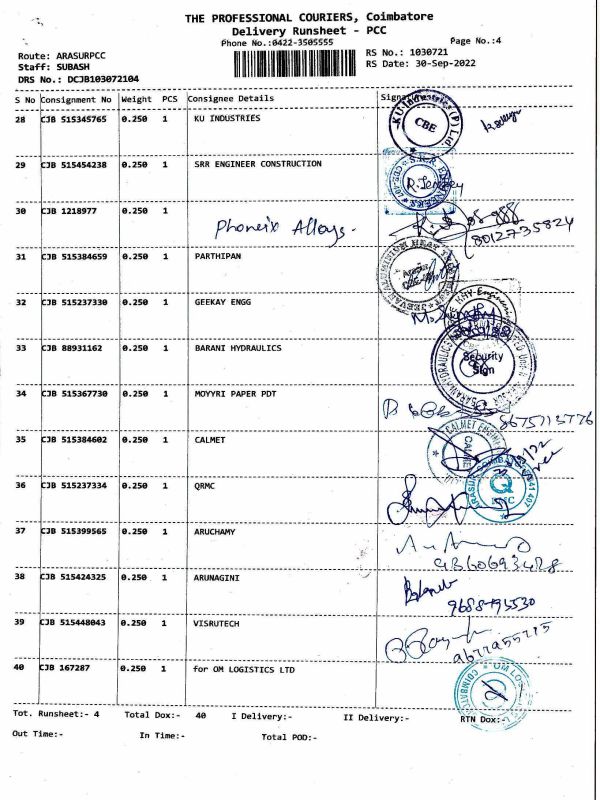 THE PROFESSIONAL COURIERS, Coimbatore
Delivery Runsheet - PCC
Phone No.:0422-3505555
Page No.:4
Route: ARASURPCC
RS No.: 1030721
Staff: SUBASH
RS Date: 30-Sep-2022
DRS No.: DCJB103072104
S No Consignment No Weight PCS Consignee Details
28 CJB 515345765 0.250 1 KU INDUSTRIES
CBE
29 CJB 515454238 0.250 1 SRR ENGINEER CONSTRUCTION
30 CJB 1218977 0.250 1
Phoneix Alloys.
8012735824
31 CJB 515384659 0.250 1 PARTHIPAN
32 CJB 515237330 0.250 1 GEEKAY ENGG
33 CJB 88931162 0.250 1 BARANI HYDRAULICS
Security
Sign
34 CJB 515367730 0.250 1 MOYYRI PAPER PDT
35 CJB 515384602 0.250 1 CALMET
36 CJB 515237334 0.250 1 QRMC
37 CJB 515399565 0.250 1 ARUCHAMY
38 CJB 515424325 0.250 1 ARUNAGINI
39 CJB 515448043 0.250 1 VISRUTECH
40 CJB 167287 0.250 1 for OM LOGISTICS LTD
Tot. Runsheet:- 4 Total Dox:- 40 I Delivery:- II Delivery:- RTN Dox:-
Out Time:- In Time:- Total POD:-